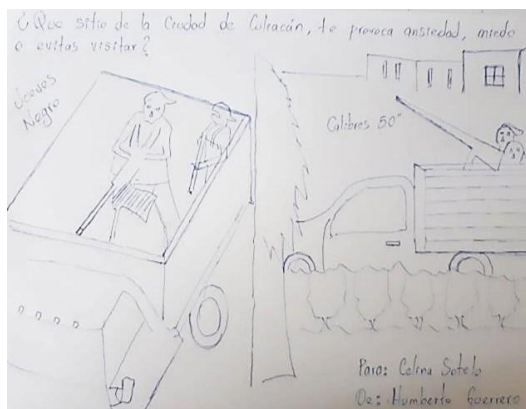 ¿Que sitio de la Ciudad de Culiacán, te provoca ansiedad, miedo
o evitas visitar?
Jueves
Negro
Calibres 50"
Para: Celina Sotelo
De: Humberto Guerrero